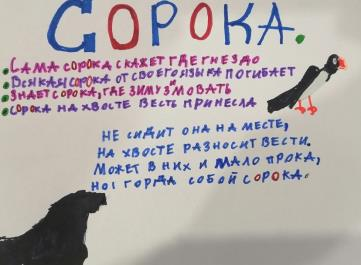 СОРОКА.
• САМА СОРОКА СКАЖЕТ ГДЕ ГНЕЗДО
• ВСЯКАЯ СОРОКА ОТ СВОЕГО ЯЗЫКА ПОГИБАЕТ
• ЗНАЕТ СОРОКА, ГДЕ ЗИМУ ЗИМОВАТЬ
• СОРОКА НА ХВОСТЕ ВЕСТЬ ПРИНЕСЛА
НЕ СИДИТ ОНА НА МЕСТЕ,
НА ХВОСТЕ РАЗНОСИТ ВЕСТИ.
МОЖЕТ В НИХ И МАЛО ПРОКА,
НО! ГОРДА СОБОЙ СОРОКА.